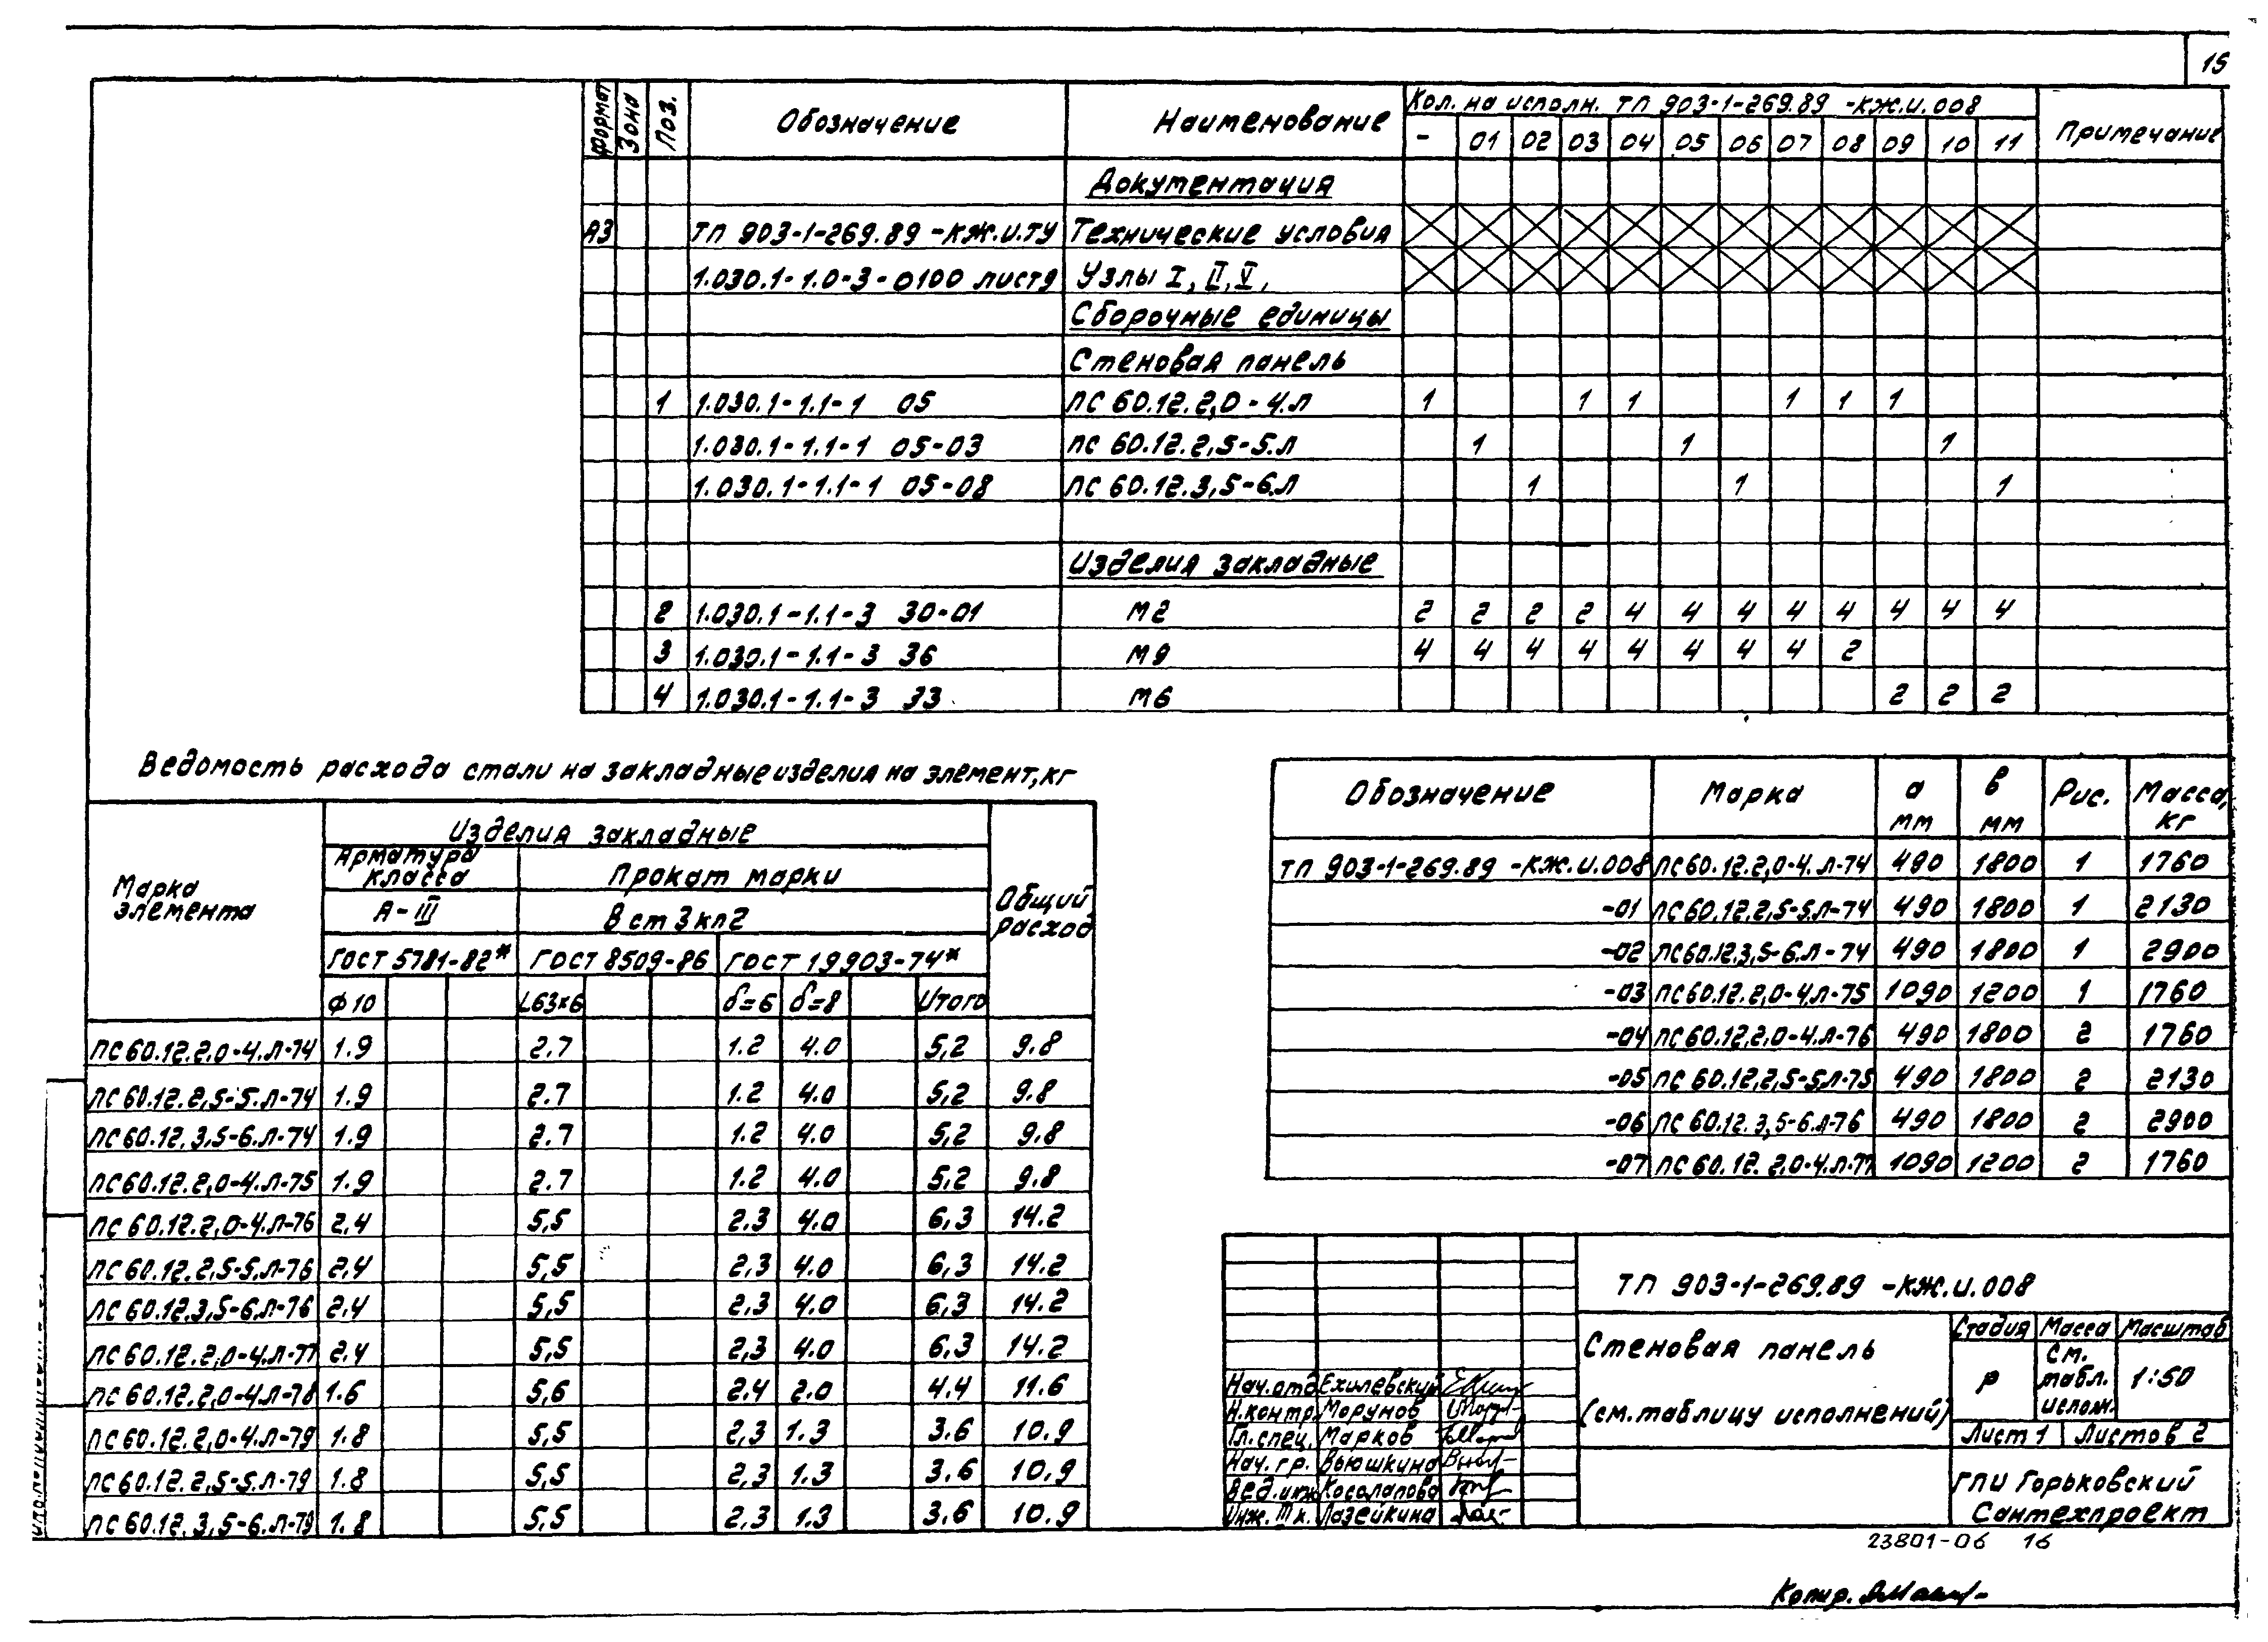 15
Формат Зона Поз. Обозначение Наименование Кол. на исполн. ТП 903-1-269.89 -КЖ.И.008 Примечание
- 01 02 03 04 05 06 07 08 09 10 11
Документация
А3 ТП 903-1-269.89 -КЖ.И.ТУ Технические условия
1.030.1-1.0-3-0100 лист9 Узлы I, II, V,
Сборочные единицы
Стеновая панель
1 1.030.1-1.1-1 05 ПС 60.12.2,0-4.Л 1 1 1 1 1 1
1.030.1-1.1-1 05-03 ПС 60.12.2,5-5.Л 1 1 1
1.030.1-1.1-1 05-08 ПС 60.12.3,5-6.Л 1 1 1
Изделия закладные
2 1.030.1-1.1-3 30-01 М2 2 2 2 2 4 4 4 4 4 4 4 4
3 1.030.1-1.1-3 36 М9 4 4 4 4 4 4 4 4 2
4 1.030.1-1.1-3 33 М6 2 2 2
Ведомость расхода стали на закладные изделия на элемент, кг
Марка элемента
Изделия закладные
Общий расход
Арматура класса
Прокат марки
А-III
В ст 3 кп2
ГОСТ 5781-82* ГОСТ 8509-86 ГОСТ 19903-74*
Ф10 L63х6 δ=6 δ=8 Итого
ПС 60.12.2,0-4.Л-74 1.9 2.7 1.2 4.0 5,2 9.8
ПС 60.12.2,5-5.Л-74 1.9 2.7 1.2 4.0 5,2 9.8
ПС 60.12.3,5-6.Л-74 1.9 2.7 1.2 4.0 5,2 9.8
ПС 60.12.2,0-4.Л-75 1.9 2.7 1.2 4.0 5.2 9.8
ПС 60.12.2,0-4.Л-76 2,4 5,5 2,3 4.0 6,3 14.2
ПС 60.12.2,5-5.Л-76 2,4 5,5 2,3 4.0 6,3 14.2
ПС 60.12.3,5-6.Л-76 2,4 5,5 2,3 4.0 6,3 14.2
ПС 60.12.2,0-4.Л-77 2,4 5,5 2,3 4.0 6,3 14.2
ПС 60.12.2,0-4.Л-78 1.6 5,6 2,4 2.0 4.4 11.6
ПС 60.12.2,0-4.Л-79 1.8 5,5 2,3 1.3 3.6 10,9
ПС 60.12.2,5-5.Л-79 1.8 5,5 2,3 1.3 3.6 10,9
ПС 60.12.3,5-6.Л-79 1.8 5,5 2,3 1.3 3.6 10,9
Обозначение Марка а мм в мм Рис. Масса, кг
ТП 903-1-269.89 -КЖ.И.008 ПС 60.12.2,0-4.Л-74 490 1800 1 1760
-01 ПС 60.12.2,5-5.Л-74 490 1800 1 2130
-02 ПС 60.12.3,5-6.Л-74 490 1800 1 2900
-03 ПС 60.12.2,0-4.Л-75 1090 1200 1 1760
-04 ПС 60.12.2,0-4.Л-76 490 1800 2 1760
-05 ПС 60.12.2,5-5.Л-75 490 1800 2 2130
-06 ПС 60.12.3,5-6.Л-76 490 1800 2 2900
-07 ПС 60.12.2,0-4.Л-77 1090 1200 2 1760
ТП 903-1-269.89 -КЖ.И.008
Стеновая панель
(см. таблицу исполнений)
Стадия Масса Масштаб
Р См. табл. исполн. 1:50
Лист 1 Листов 2
ГПИ Горьковский
Сантехпроект
Нач.отд Ехилевский
Н.контр. Морунов
Гл.спец. Марков
Нач.гр. Вьюшкина
Вед.инж Косолапова
Инж. II к. Лазейкина
23801-06 16
Копир.